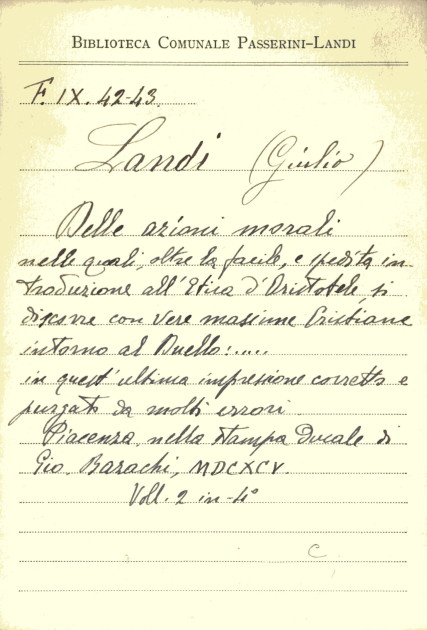 BIBLIOTECA COMUNALE PASSERINI-LANDI
F. IX. 42-43.
Landi (Giulio)
Delle azioni morali
nelle quali, oltre la facile, e spedita in-
troduzione all'Etica d'Aristotele, si
discorre con vere massime Cristiane
intorno al Duello:.....
in quest'ultima impressione corretto e
purgato da molti errori.
Piacenza, nella stampa Ducale di
Gio. Bazachi, MDCXCV.
Voll. 2 in-4°
C